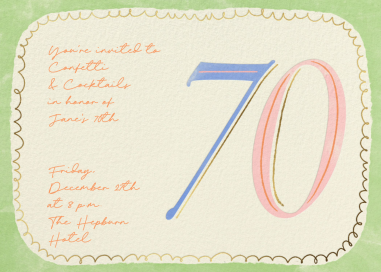 You're invited to
Confetti
& Cocktails
in honor of
Jane's 70th
70
Friday,
December 29th
at 8 pm
The Hepburn
Hotel